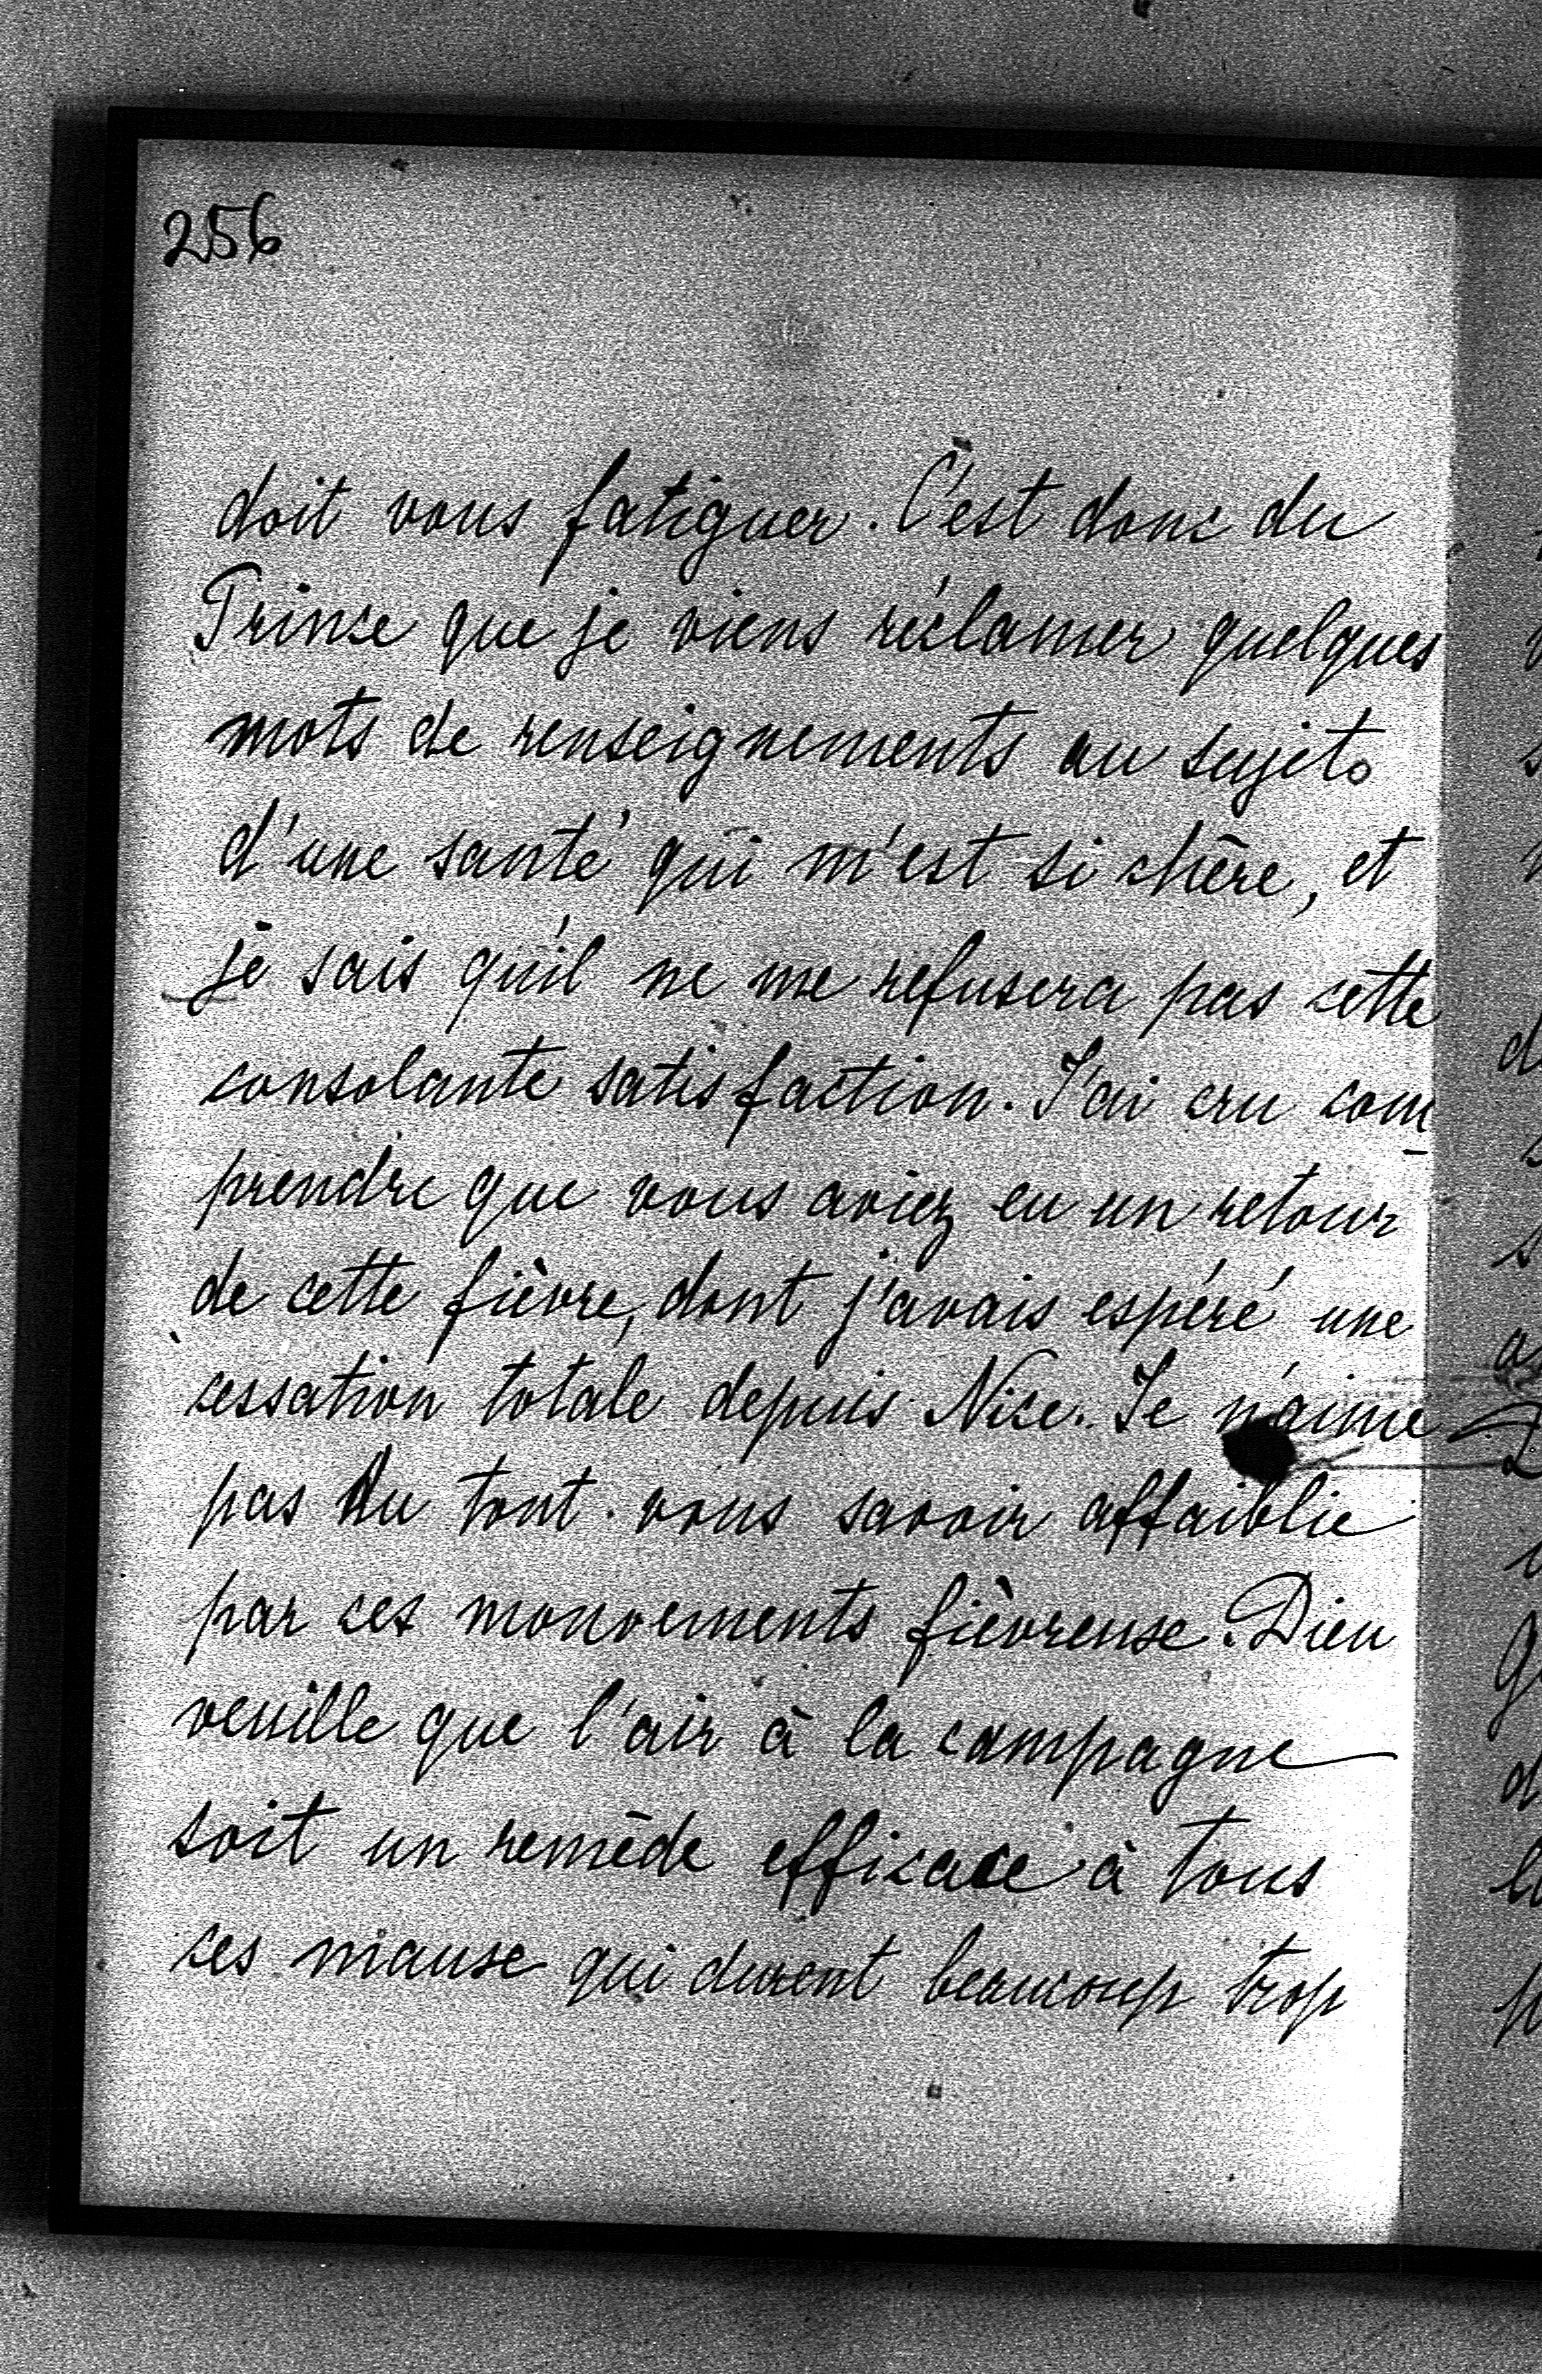 256
doit vous fatiguer. C'est donc du
Prince que je viens réclamer quelques
mots de renseignements au sujet
d'une santé qui m'est si chère, et
je sais qu'il ne me refusera pas cette
consolante satisfaction. J'ai cru com-
prendre que vous aviez eu un retour
de cette fièvre, dont j'avais espéré une
cessation totale depuis Nice. Je n'aime
pas du tout vous savoir affaiblie
par ces mouvements fièvreuse. Dieu
veuille que l'air à la campagne
soit un remède efficace à tous
ces mause qui durent beaucoup trop